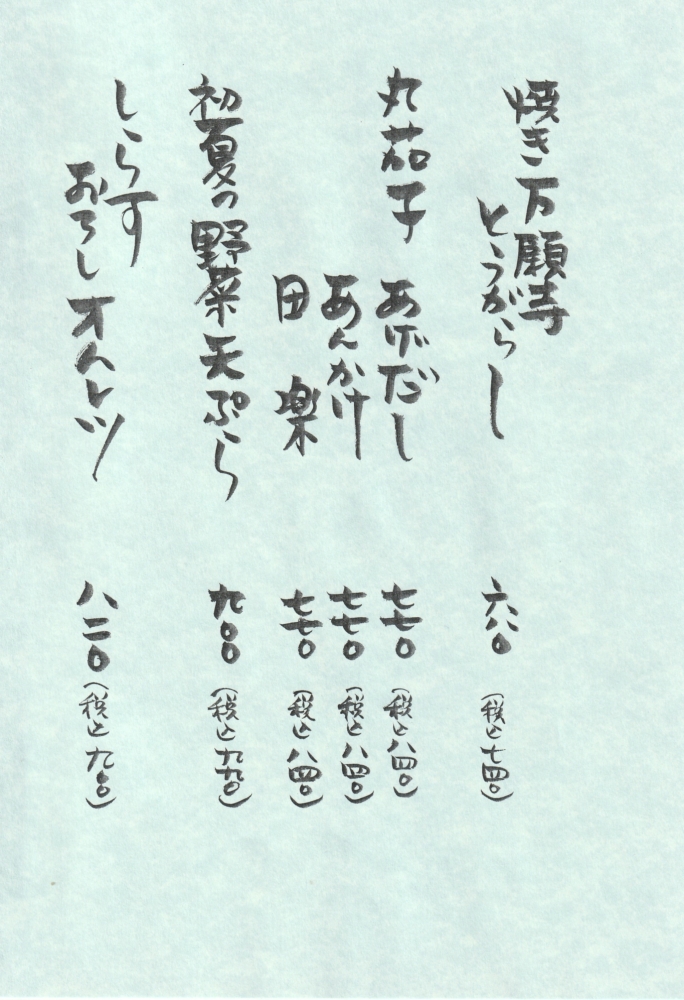 焼き万願寺
とうがらし 六八〇 (税込七四〇)
丸茄子 あげだし 七七〇 (税込八四〇)
あんかけ 七七〇 (税込八四〇)
田楽 七七〇 (税込八四〇)
初夏の野菜天ぷら 九〇〇 (税込九九〇)
しらす
おろしオムレツ 八二〇 (税込九〇〇)